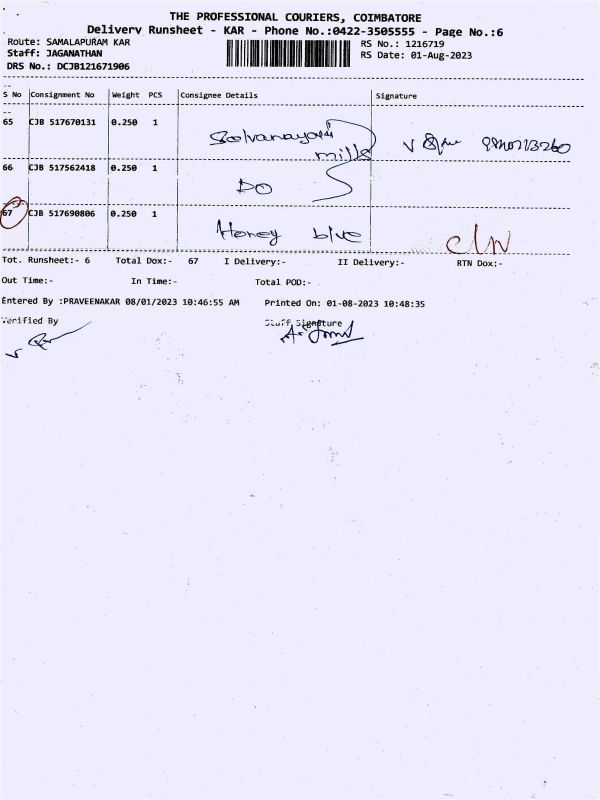 THE PROFESSIONAL COURIERS, COIMBATORE
Delivery Runsheet - KAR - Phone No.:0422-3505555 - Page No.:6
Route: SAMALAPURAM KAR
RS No.: 1216719
Staff: JAGANATHAN
RS Date: 01-Aug-2023
DRS No.: DCJB121671906
S No Consignment No Weight PCS Consignee Details Signature
65 CJB 517670131 0.250 1
mills
66 CJB 517562418 0.250 1 DO
67 CJB 517690806 0.250 1 Honey blue
Tot. Runsheet:- 6 Total Dox:- 67 I Delivery:- II Delivery:- RTN Dox:-
Out Time:- In Time:- Total POD:-
Entered By :PRAVEENAKAR 08/01/2023 10:46:55 AM Printed On: 01-08-2023 10:48:35
Verified By Staff Signature